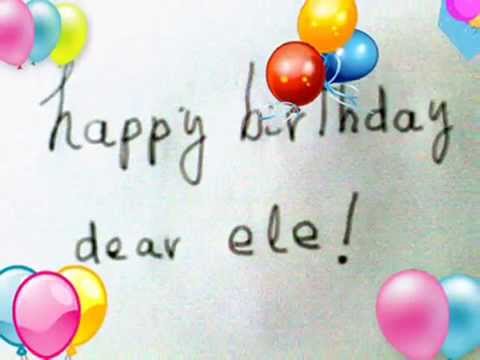 happy birthday
dear ele!